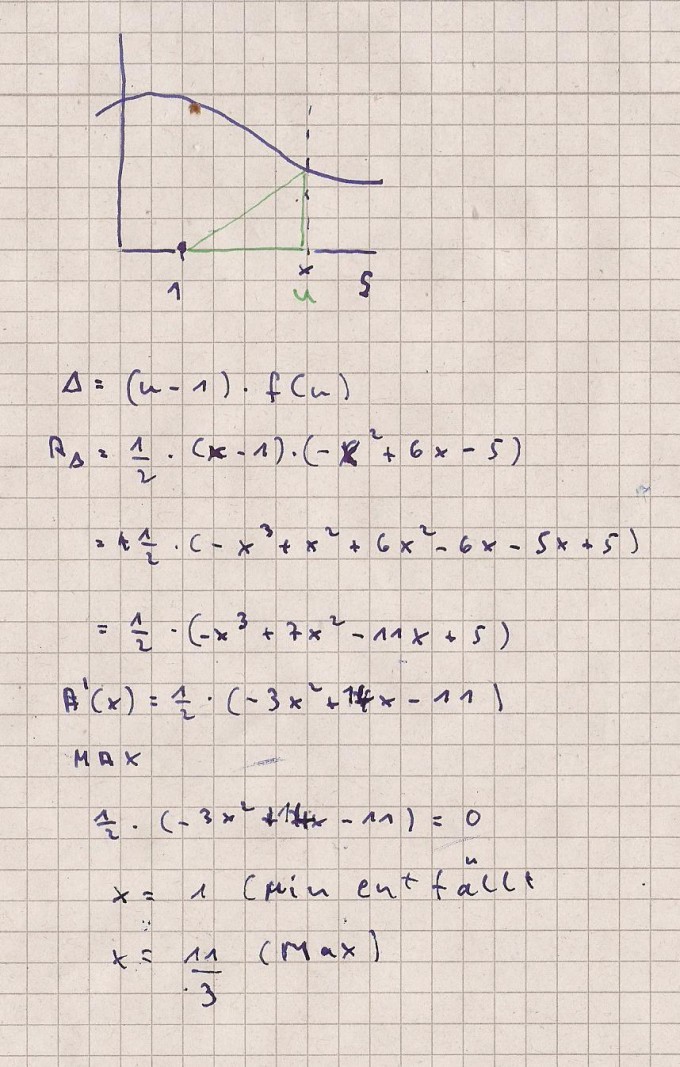 1 x 5
u
Δ = (u - 1) · f(u)
A_Δ = 1/2 · (x - 1) · (-x² + 6x - 5)
= 1/2 · (-x³ + x² + 6x² - 6x - 5x + 5)
= 1/2 · (-x³ + 7x² - 11x + 5)
A'(x) = 1/2 · (-3x² + 14x - 11)
MAX
1/2 · (-3x² + 14x - 11) = 0
x = 1 (Min entfällt
x = 11/3 (Max)